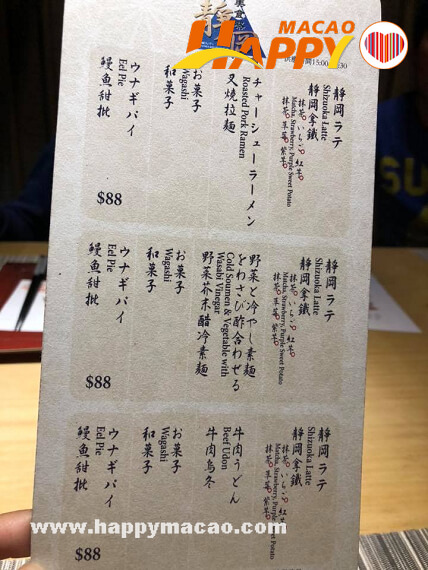 MACAO
HAPPY
靜岡
15:00
靜岡ラテ
Shizuoka Latte
靜岡拿鐵
Matcha, Strawberry, Purple Sweet Potato
チャーシューラーメン
Roasted Pork Ramen
叉燒拉麵
お菓子
Wagashi
和菓子
ウナギパイ
Eel Pie
鰻魚甜批
$88
靜岡ラテ
Shizuoka Latte
靜岡拿鐵
Matcha, Strawberry, Purple Sweet Potato
野菜と冷やし素麺
をわさび酢合わせる
Cold Soumen & Vegetable with
Wasabi Vinegar
野菜芥末醋冷素麵
お菓子
Wagashi
和菓子
ウナギパイ
Eel Pie
鰻魚甜批
$88
靜岡ラテ
Shizuoka Latte
靜岡拿鐵
Matcha, Strawberry, Purple Sweet Potato
牛肉うどん
Beef Udon
牛肉烏冬
お菓子
Wagashi
和菓子
ウナギパイ
Eel Pie
鰻魚甜批
$88
www.happymacao.com